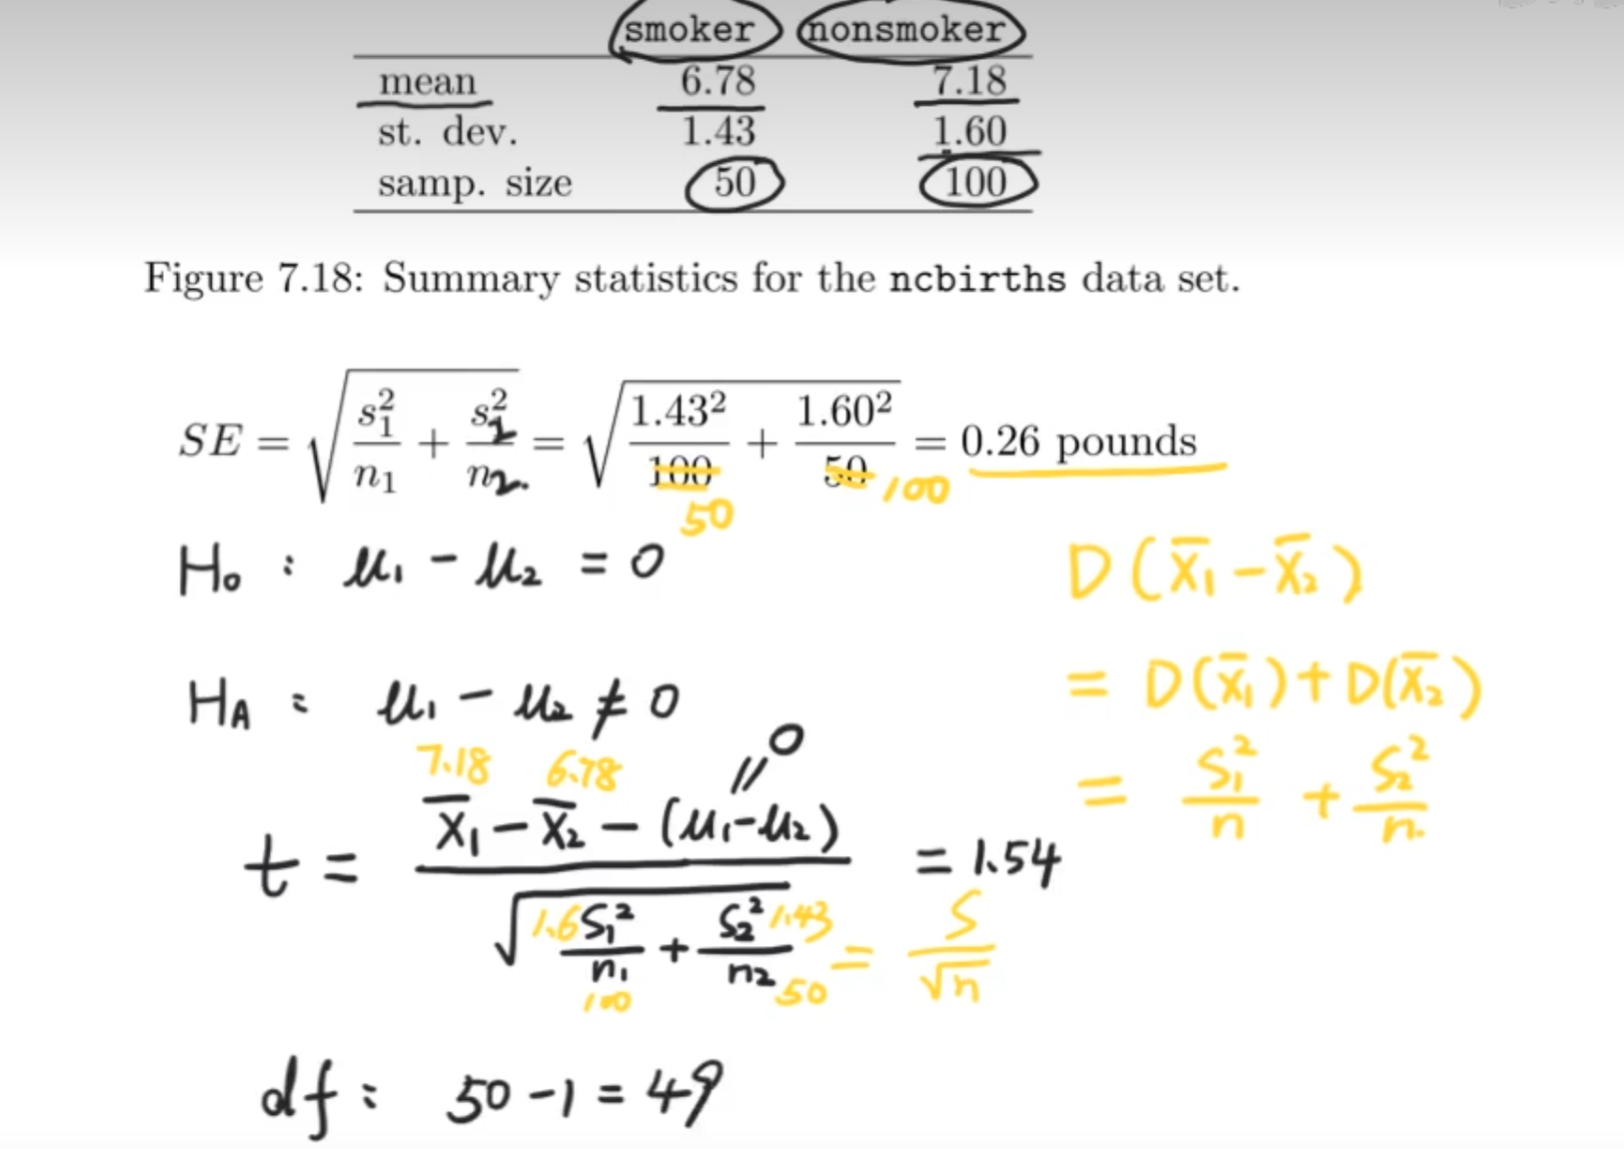 smoker nonsmoker
mean 6.78 7.18
st. dev. 1.43 1.60
samp. size 50 100
Figure 7.18: Summary statistics for the ncbirths data set.
SE = √(s₁²/n₁ + s₂²/n₂) = √(1.43²/100 + 1.60²/50) = 0.26 pounds
50 100
H₀ : μ₁ - μ₂ = 0
D(x̄₁ - x̄₂)
= D(x̄₁) + D(x̄₂)
H_A : μ₁ - μ₂ ≠ 0
= S₁²/n + S₂²/n.
7.18 6.78 = 0
t = (x̄₁ - x̄₂ - (μ₁-μ₂)) / √(S₁²/n₁ + S₂²/n₂) = 1.54
1.6 1.43
100 50
= S/√n
df : 50 - 1 = 49